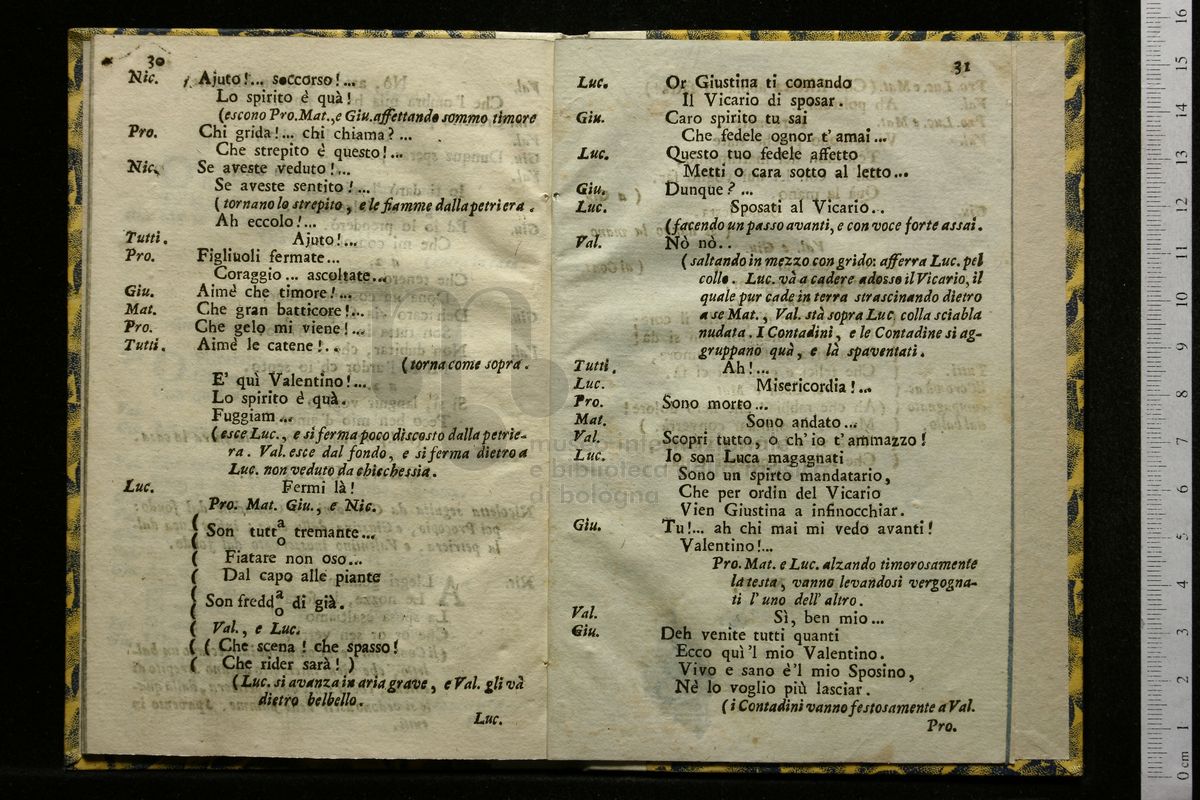 30
Nic. Ajuto!... soccorso!...
Lo spirito è quà!
(escono Pro. Mat., e Giu. affettando sommo timore
Pro. Chi grida!... chi chiama?...
Che strepito è questo!...
Nic. Se aveste veduto!...
Se aveste sentito!...
(tornano lo strepito, e le fiamme dalla petriera.
Ah eccolo!...
Tutti. Ajuto!...
Pro. Figliuoli fermate...
Coraggio... ascoltate...
Giu. Aimè che timore!...
Mat. Che gran batticore!...
Pro. Che gelo mi viene!...
Tutti. Aimè le catene!..
(torna come sopra.
E' quì Valentino!...
Lo spirito è quà.
Fuggiam...
(esce Luc., e si ferma poco discosto dalla petrie-
ra. Val. esce dal fondo, e si ferma dietro a
Luc. non veduto da chicchessia.
Luc. Fermi là!
Pro. Mat. Giu., e Nic.
( Son tutt a/o tremante...
( Fiatare non oso...
( Dal capo alle piante
( Son fredd a/o di già.
( Val., e Luc.
( ( Che scena! che spasso!
( Che rider sarà! )
(Luc. si avanza in aria grave, e Val. gli và
dietro belbello.
Luc.
31
Luc. Or Giustina ti comando
Il Vicario di sposar.
Giu. Caro spirito tu sai
Che fedele ognor t' amai...
Luc. Questo tuo fedele affetto
Metti o cara sotto al letto...
Giu. Dunque?...
Luc. Sposati al Vicario..
(facendo un passo avanti, e con voce forte assai.
Val. Nò nò..
(saltando in mezzo con grido: afferra Luc. pel
collo. Luc. và a cadere adosso il Vicario, il
quale pur cade in terra strascinando dietro
a se Mat., Val. stà sopra Luc. colla sciabla
nudata. I Contadini, e le Contadine si ag-
gruppano quà, e là spaventati.
Tutti. Ah!...
Luc. Misericordia!...
Pro. Sono morto...
Mat. Sono andato...
Val. Scopri tutto, o ch' io t' ammazzo!
Luc. Io son Luca magagnati
Sono un spirto mandatario,
Che per ordin del Vicario
Vien Giustina a infinocchiar.
Giu. Tu!... ah chi mai mi vedo avanti!
Valentino!...
Pro. Mat. e Luc. alzando timorosamente
la testa, vanno levandosi vergogna-
ti l' uno dell' altro.
Val. Sì, ben mio...
Giu. Deh venite tutti quanti
Ecco quì 'l mio Valentino.
Vivo e sano è 'l mio Sposino,
Nè lo voglio più lasciar.
(i Contadini vanno festosamente a Val.
Pro.
e biblioteca
di bologna
0 cm 1 2 3 4 5 6 7 8 9 10 11 12 13 14 15 16